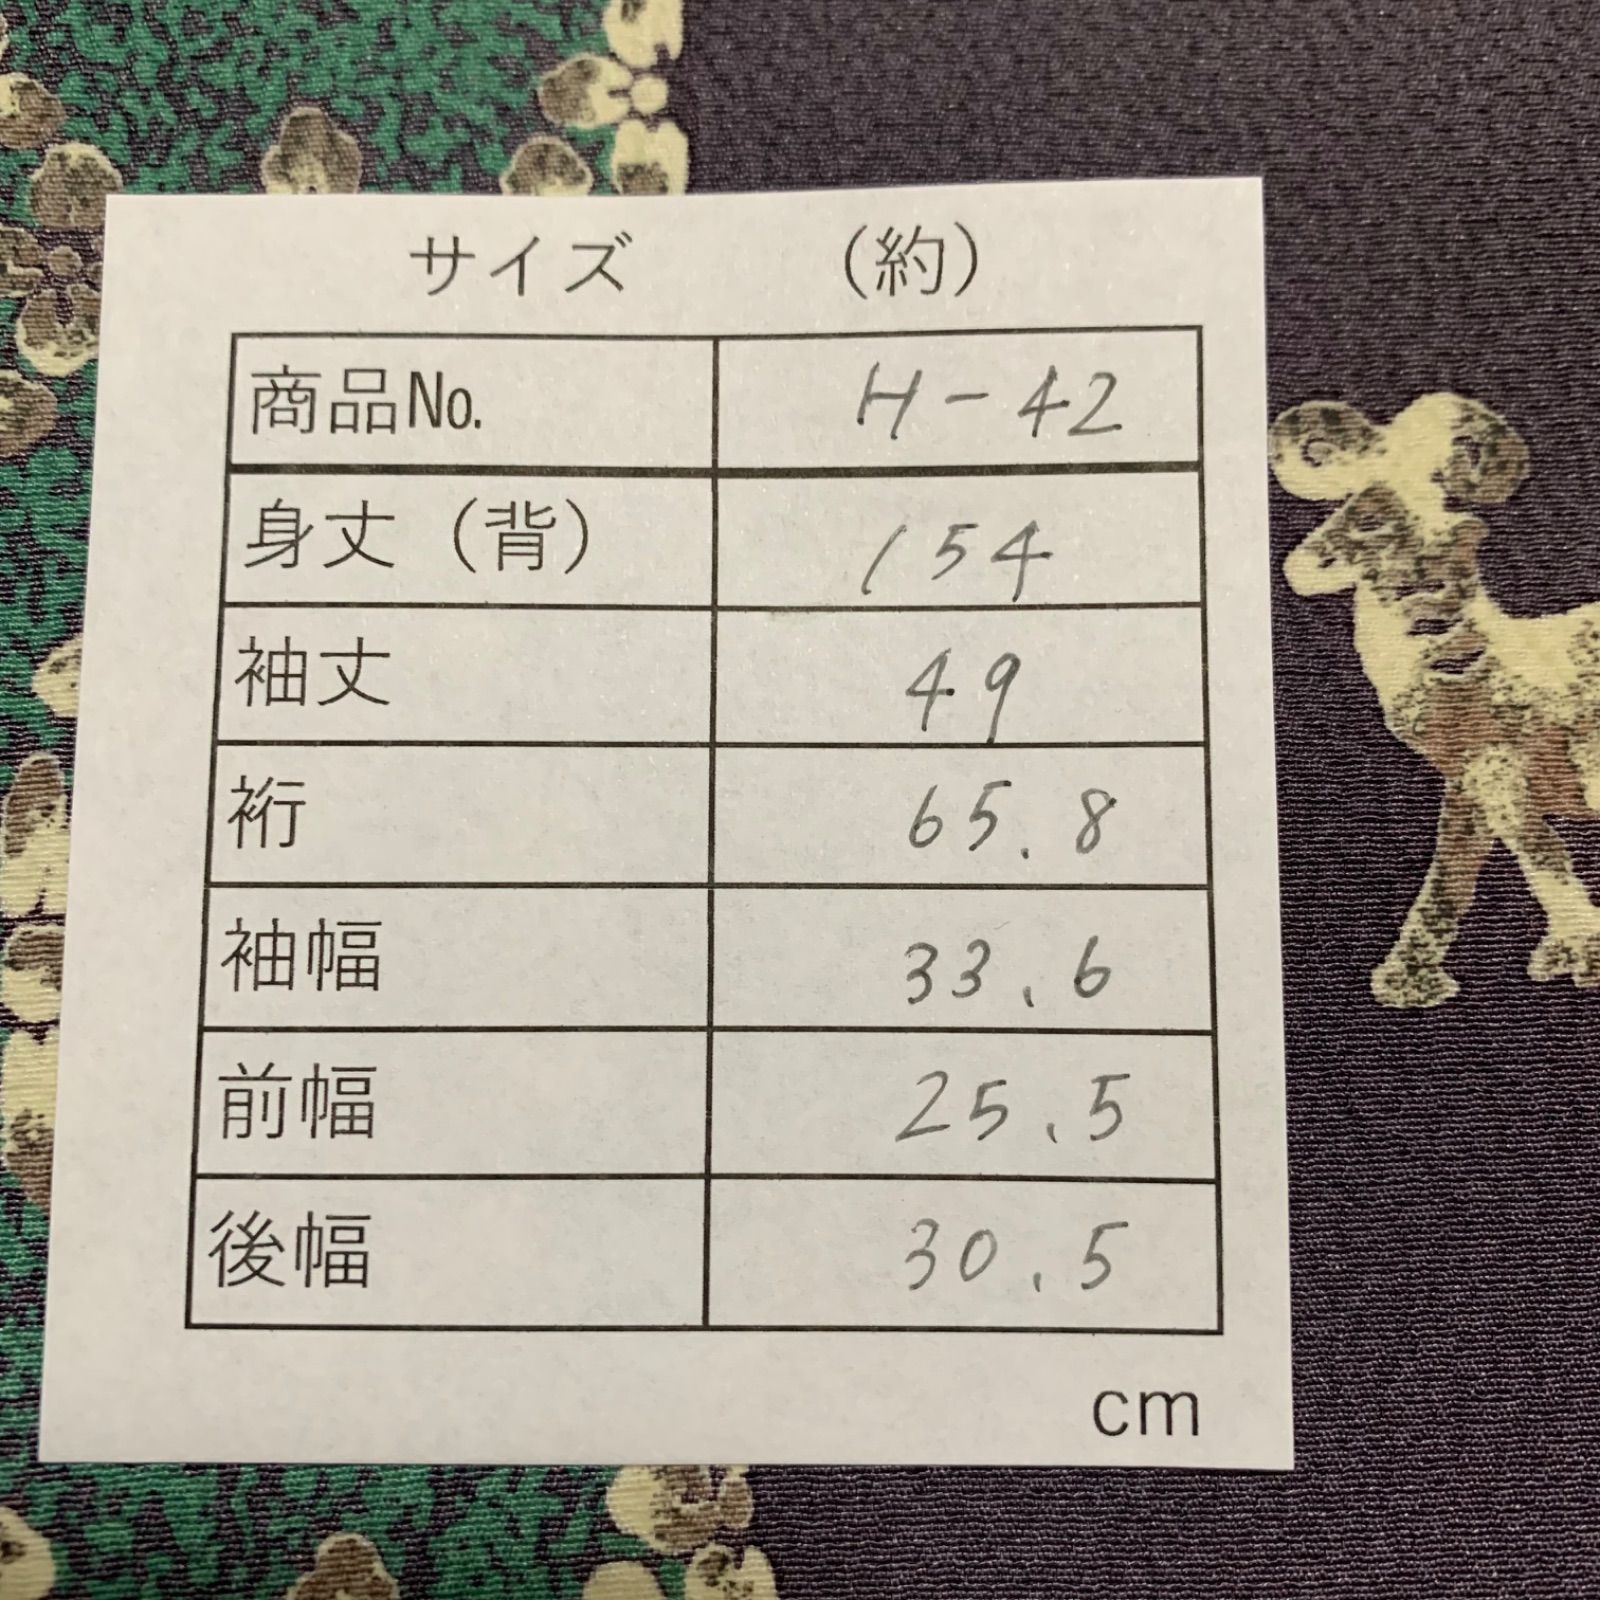 サイズ （約）
商品№ H-42
身丈（背） 154
袖丈 49
裄 65.8
袖幅 33.6
前幅 25.5
後幅 30.5
cm